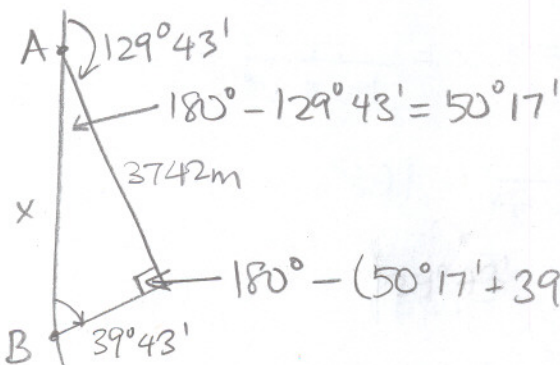 A 129°43'
180° - 129°43' = 50°17'
3742m
x
180° - (50°17' + 39
B 39°43'